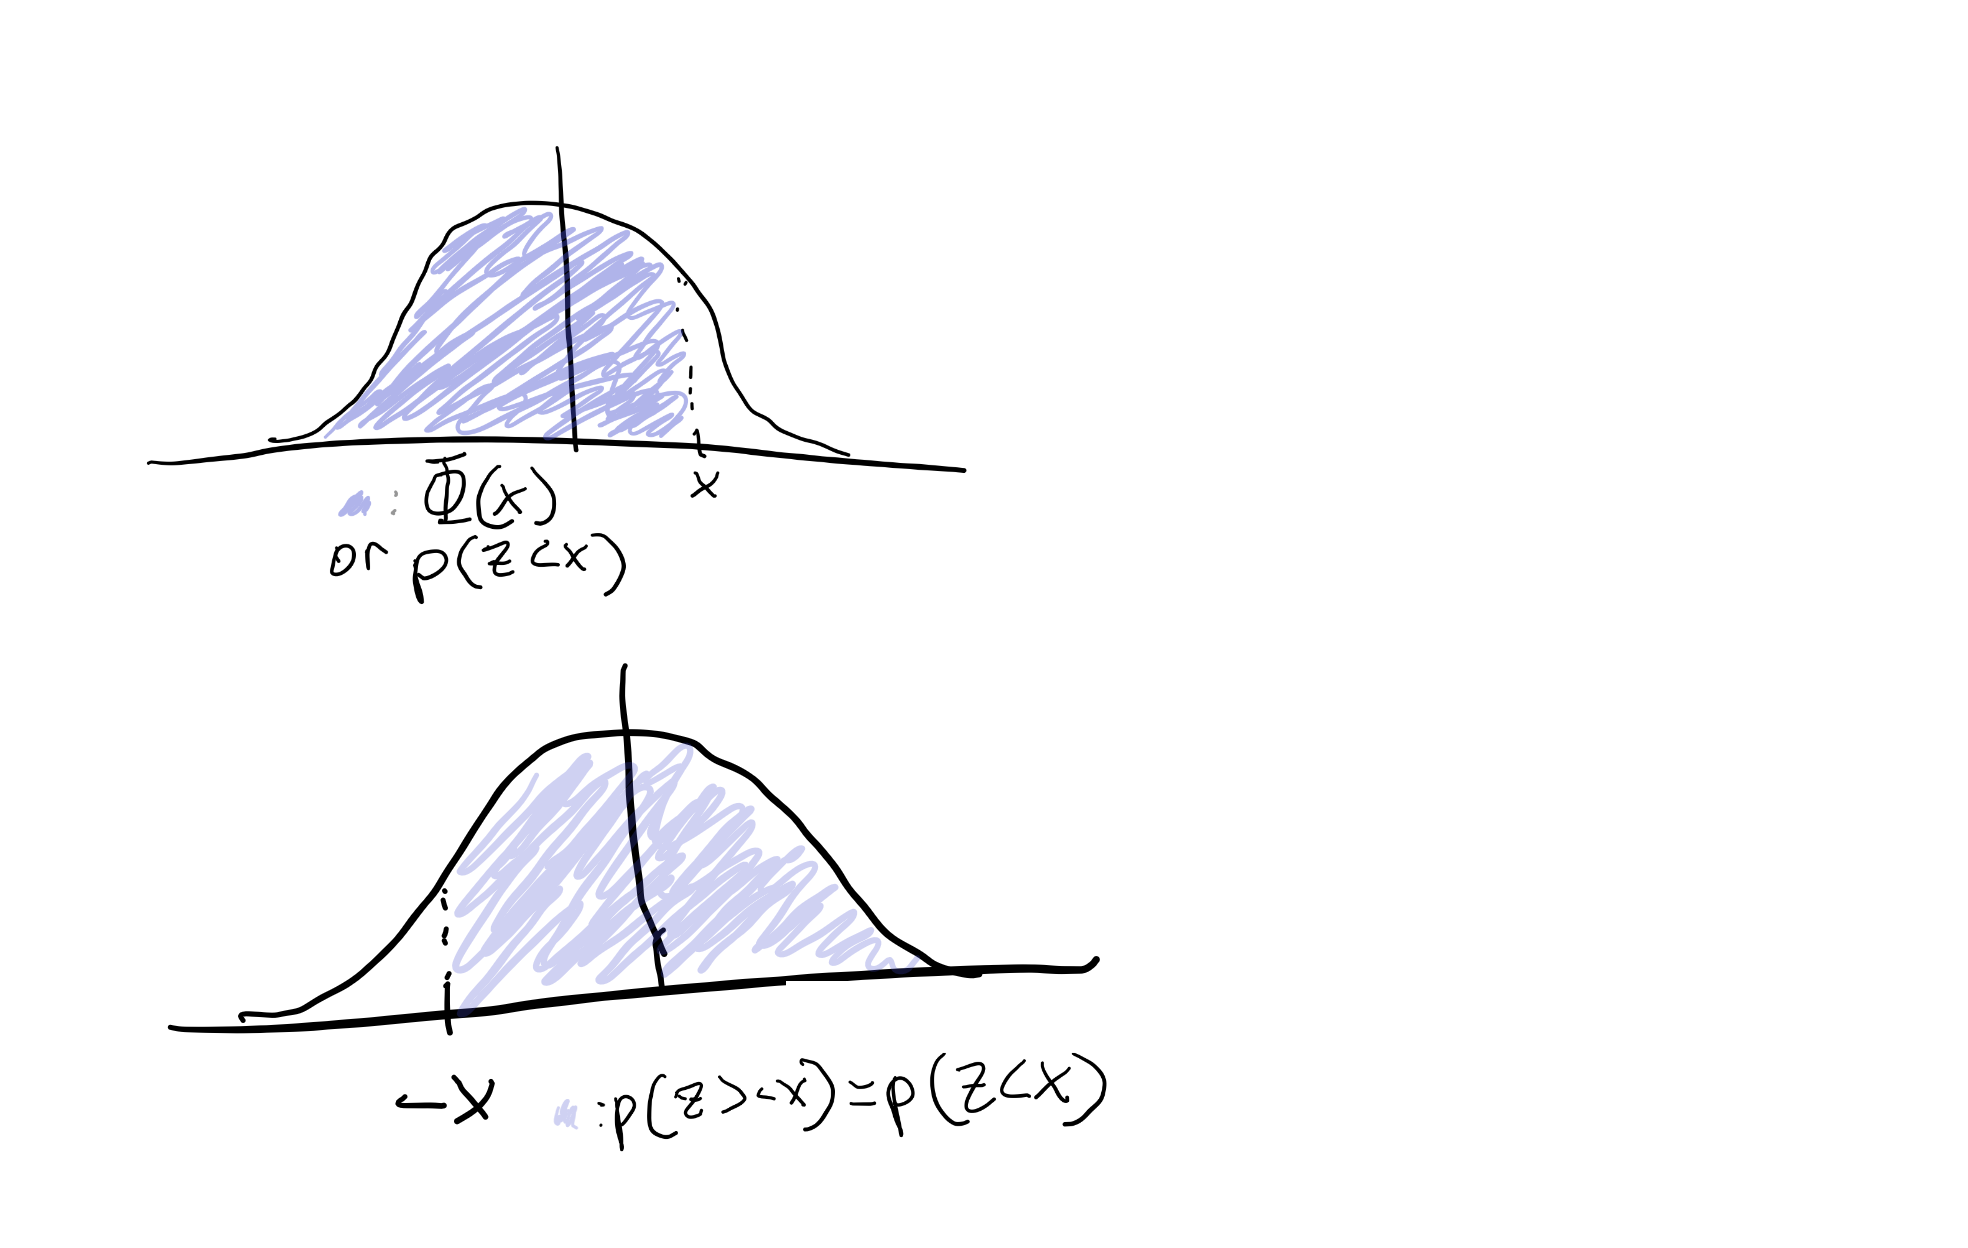 x
: Φ(x)
or p(z<x)
-x
: p(z>-x)=p(z<x)